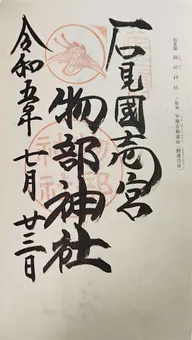 石見國壱宮
物部神社
令和五年七月廿三日